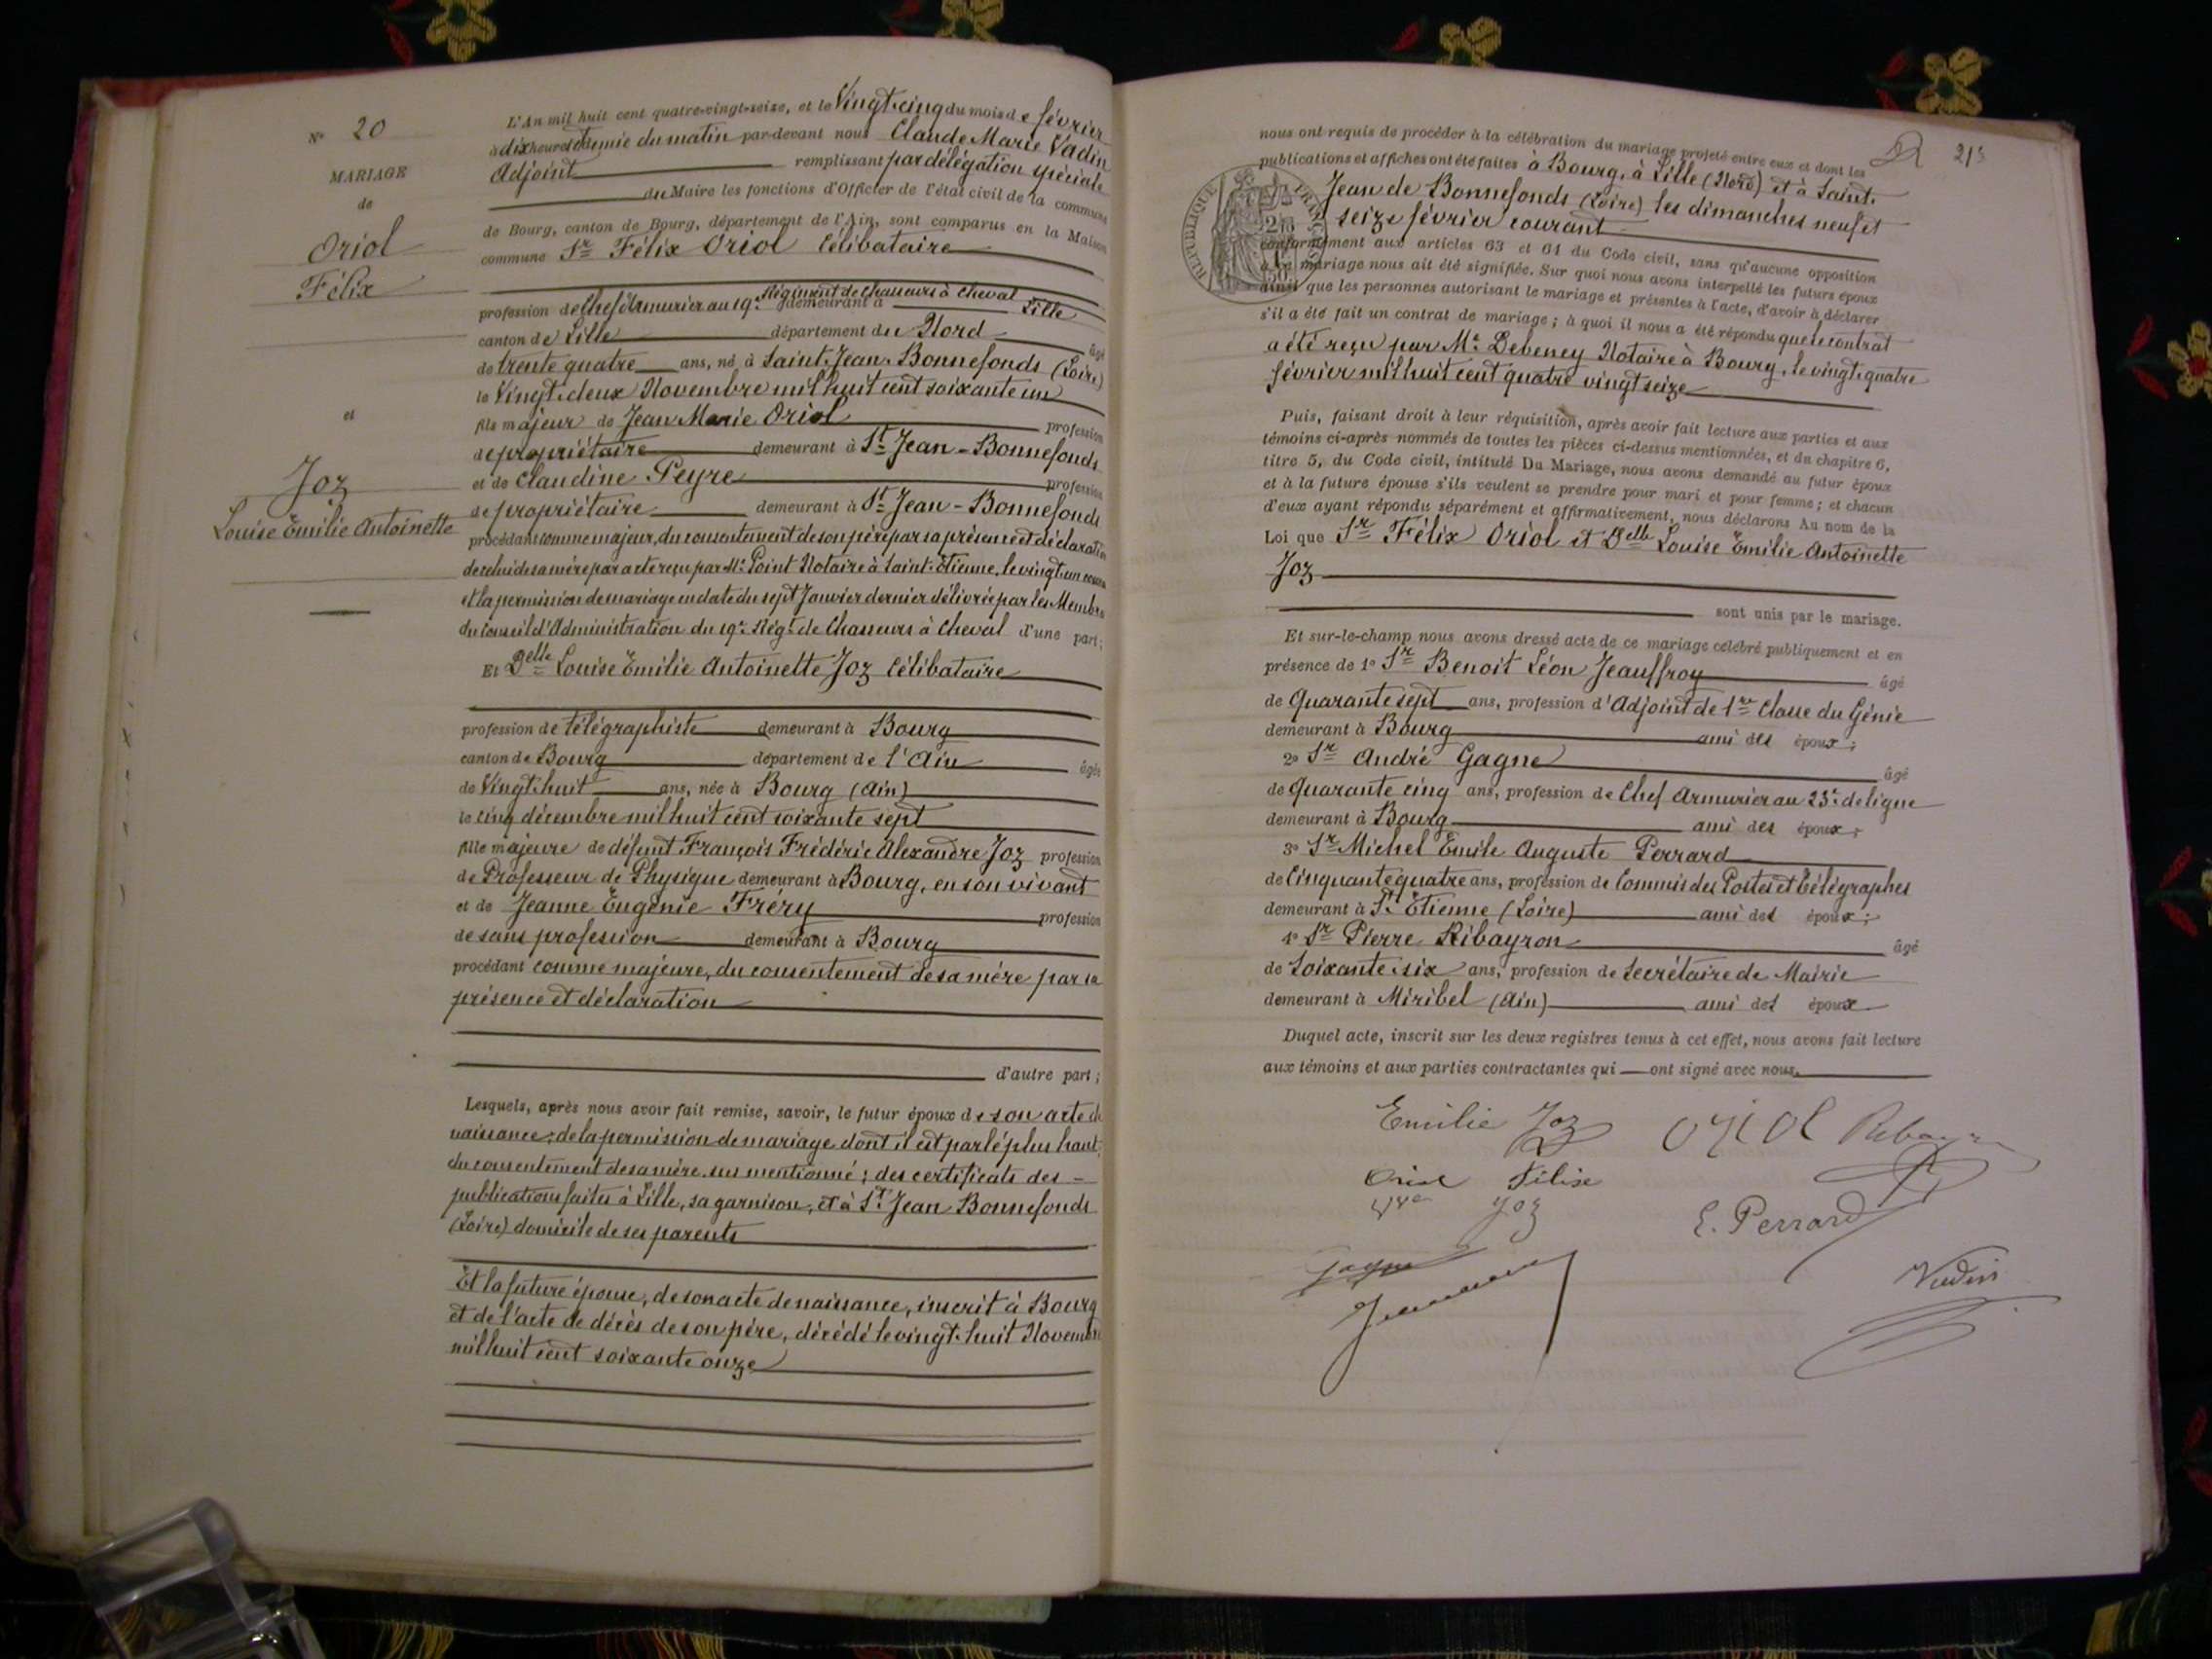 N° 20
MARIAGE
de
Oriol
Félix
et
Joz
Louise Émilie Antoinette
L'An mil huit cent quatre-vingt-seize, et le Vingt-cinq du mois de février
à dix heures et demie du matin par-devant nous Claude Marie Vadin
Adjoint remplissant par délégation spéciale
du Maire les fonctions d'Officier de l'état civil de la commune
de Bourg, canton de Bourg, département de l'Ain, sont comparus en la Maison
commune Sr Félix Oriol Célibataire
Régiment de Chasseurs à Cheval
profession de Chef armurier au 19e demeurant à Lille
canton de Lille département du Nord âgé
de trente quatre ans, né à Saint-Jean-Bonnefonds (Loire)
le Vingt-deux Novembre mil huit cent soixante un
fils majeur de Jean Marie Oriol profession
de propriétaire demeurant à St Jean-Bonnefonds
et de Claudine Peyre profession
de propriétaire demeurant à St Jean-Bonnefonds
procédant comme majeur, du consentement de son père par sa présence et déclaration
de celui de sa mère par acte reçu par Me Point Notaire à Saint-Étienne, le vingt un courant
et la permission de mariage en date du sept Janvier dernier délivrée par les Membres
du Conseil d'Administration du 19e Régt de Chasseurs à Cheval d'une part;
Et Delle Louise Émilie Antoinette Joz Célibataire
profession de télégraphiste demeurant à Bourg
canton de Bourg département de l'Ain âgée
de Vingt-huit ans, née à Bourg (Ain)
le cinq décembre mil huit cent soixante sept
fille majeure de défunt François Frédéric Alexandre Joz profession
de Professeur de Physique demeurant à Bourg, en son vivant
et de Jeanne Eugénie Fréry profession
de sans profession demeurant à Bourg
procédant comme majeure, du consentement de sa mère par sa
présence et déclaration
d'autre part;
Lesquels, après nous avoir fait remise, savoir, le futur époux de son acte de
naissance; de la permission de mariage dont il est parlé plus haut,
du consentement de sa mère sus mentionné; des certificats des
publications faites à Lille, sa garnison, et à St Jean Bonnefonds
(Loire) domicile de ses parents
Et la future épouse, de son acte de naissance, inscrit à Bourg
et de l'acte de décès de son père, décédé le vingt-huit Novembre
mil huit cent soixante onze
213
nous ont requis de procéder à la célébration du mariage projeté entre eux et dont les
publications et affiches ont été faites à Bourg, à Lille (Nord) et à Saint-
Jean de Bonnefonds (Loire) les dimanches neuf et
seize février courant
conformément aux articles 63 et 64 du Code civil, sans qu'aucune opposition
à ce mariage nous ait été signifiée. Sur quoi nous avons interpellé les futurs époux
ainsi que les personnes autorisant le mariage et présentes à l'acte, d'avoir à déclarer
s'il a été fait un contrat de mariage; à quoi il nous a été répondu que le contrat
a été reçu par Me Debeney Notaire à Bourg, le vingt-quatre
février mil huit cent quatre vingt seize
Puis, faisant droit à leur réquisition, après avoir fait lecture aux parties et aux
témoins ci-après nommés de toutes les pièces ci-dessus mentionnées, et du chapitre 6,
titre 5, du Code civil, intitulé Du Mariage, nous avons demandé au futur époux
et à la future épouse s'ils veulent se prendre pour mari et pour femme; et chacun
d'eux ayant répondu séparément et affirmativement, nous déclarons Au nom de la
Loi que Sr Félix Oriol et Delle Louise Émilie Antoinette
Joz
sont unis par le mariage.
Et sur-le-champ nous avons dressé acte de ce mariage célébré publiquement et en
présence de 1° Sr Benoit Léon Jeauffroy âgé
de Quarante sept ans, profession d'Adjoint de 1re Classe du Génie
demeurant à Bourg ami des époux;
2° Sr André Gagne âgé
de Quarante cinq ans, profession de Chef armurier au 23e de ligne
demeurant à Bourg ami des époux;
3° Sr Michel Émile Auguste Perrard
de Cinquante quatre ans, profession de Commis des Postes et Télégraphes
demeurant à St Étienne (Loire) ami des époux;
4° Sr Pierre Ribayron âgé
de Soixante-six ans, profession de Secrétaire de Mairie
demeurant à Miribel (Ain) ami des époux
Duquel acte, inscrit sur les deux registres tenus à cet effet, nous avons fait lecture
aux témoins et aux parties contractantes qui ont signé avec nous.
Emilie Joz Oriol
Oriol Félix
Joz E. Perrard
Gagne Vadin
RÉPUBLIQUE FRANÇAISE